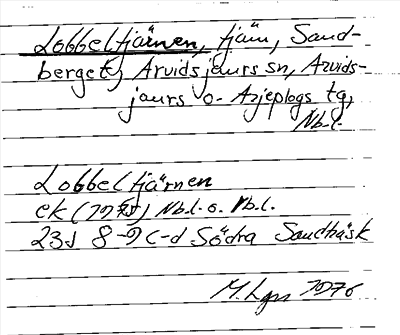 Lobbeltjärnen, tjärn, Sand-
berget, Arvidsjaurs sn, Arvids-
jaurs o. Arjeplogs tg,
Nb.l.
Lobbeltjärnen
ek (1975) Nb.l. o. Vb.l.
23J 8-9 c-d Södra Sandträsk
M. Lgn 1976